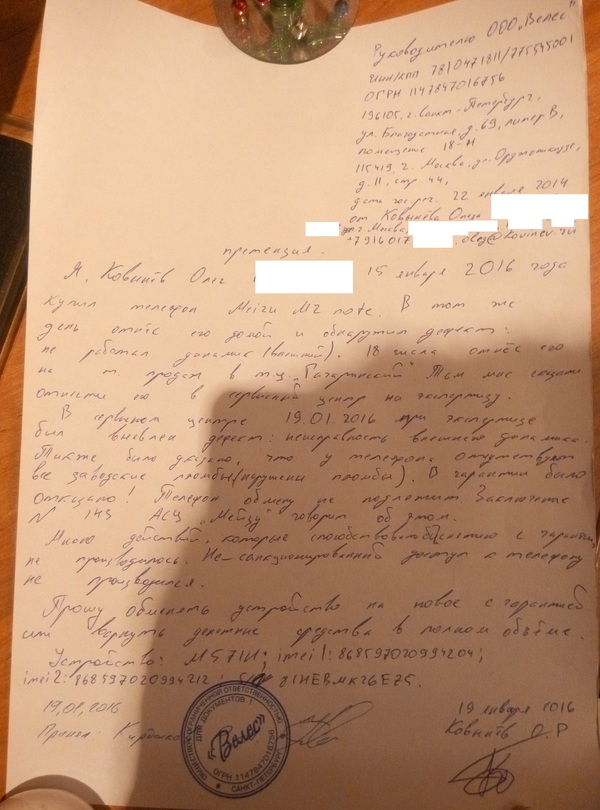 Руководителю ООО „Велес"
ИНН/КПП 7810471811/775545001
ОГРН 1147847016756
196105, г. Санкт-Петербург,
ул. Благодатная, д. 69, литер В,
помещение 18-Н
115419, г. Москва, ул. Орджоникидзе,
д. 11, стр. 44,
дата гос рег. 22 января 2014
от Ковынёва Олега
г. Москва
+7916017 oleg@kovinev.ru
претензия.
Я, Ковынёв Олег 15 января 2016 года
купил телефон Meizu M2 note. В тот же
день отнёс его домой и обнаружил дефект:
не работал динамик (внешний). 18 числа отнёс его
на т. продаж в т.ц. „Гагаринский" Там мне сказали
отнести его в сервисный центр на экспертизу.
В сервисном центре 19.01.2016 при экспертизе
был выевлен дефект: неисправность внешнего динамика.
Также было указано, что у телефона отсутствуют
все заводские пломбы (нарушены пломбы). В гарантии было
отказано! Телефон обмену не подлежит Заключение
N 143 АСЦ „Мейзу" говорит об этом.
Мною действий, которые способствовали снятию с гарантии,
не производилось. Не санкционированный доступ к телефону
не производился.
Прошу обменять устройство на новое с гарантией
или вернуть денежные средства в полном объёме.
Устройство: M571H; imei1: 868597020994204;
imei2: 868597020994212; S/N
19,01,2016 19 января 2016
Принял Ковынёв О.Р
ОБЩЕСТВО С ОГРАНИЧЕННОЙ ОТВЕТСТВЕННОСТЬЮ
ДЛЯ ДОКУМЕНТОВ 1
«Велес»
ОГРН 1147847016756
САНКТ-ПЕТЕРБУРГ